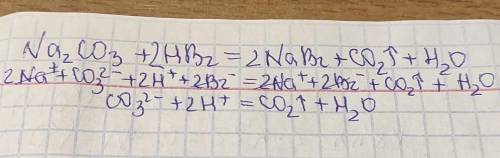 Na₂CO₃ + 2HBr = 2NaBr + CO₂↑ + H₂O
2Na⁺ + CO₃²⁻ + 2H⁺ + 2Br⁻ = 2Na⁺ + 2Br⁻ + CO₂↑ + H₂O
CO₃²⁻ + 2H⁺ = CO₂↑ + H₂O